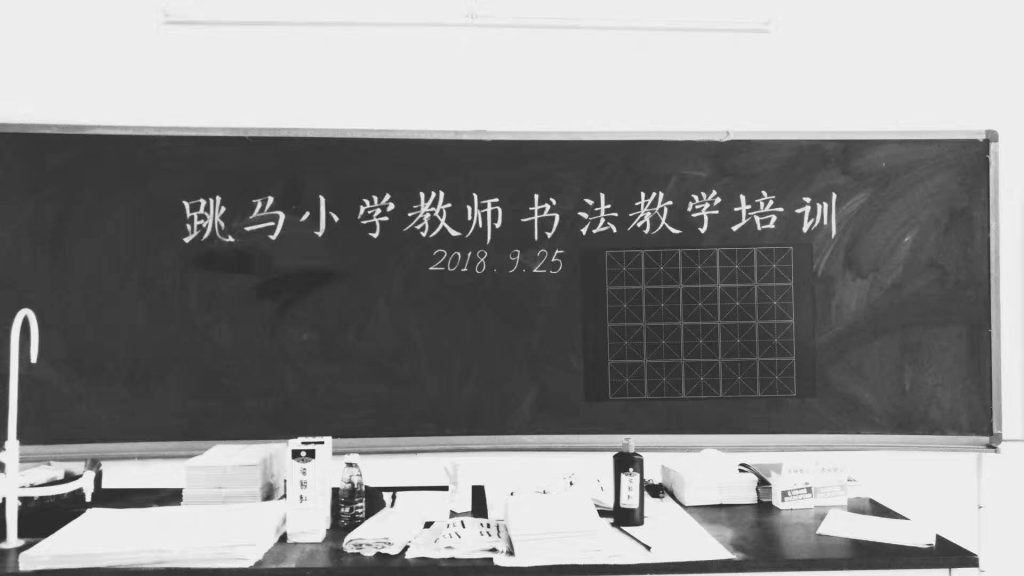 跳马小学教师书法教学培训
2018.9.25